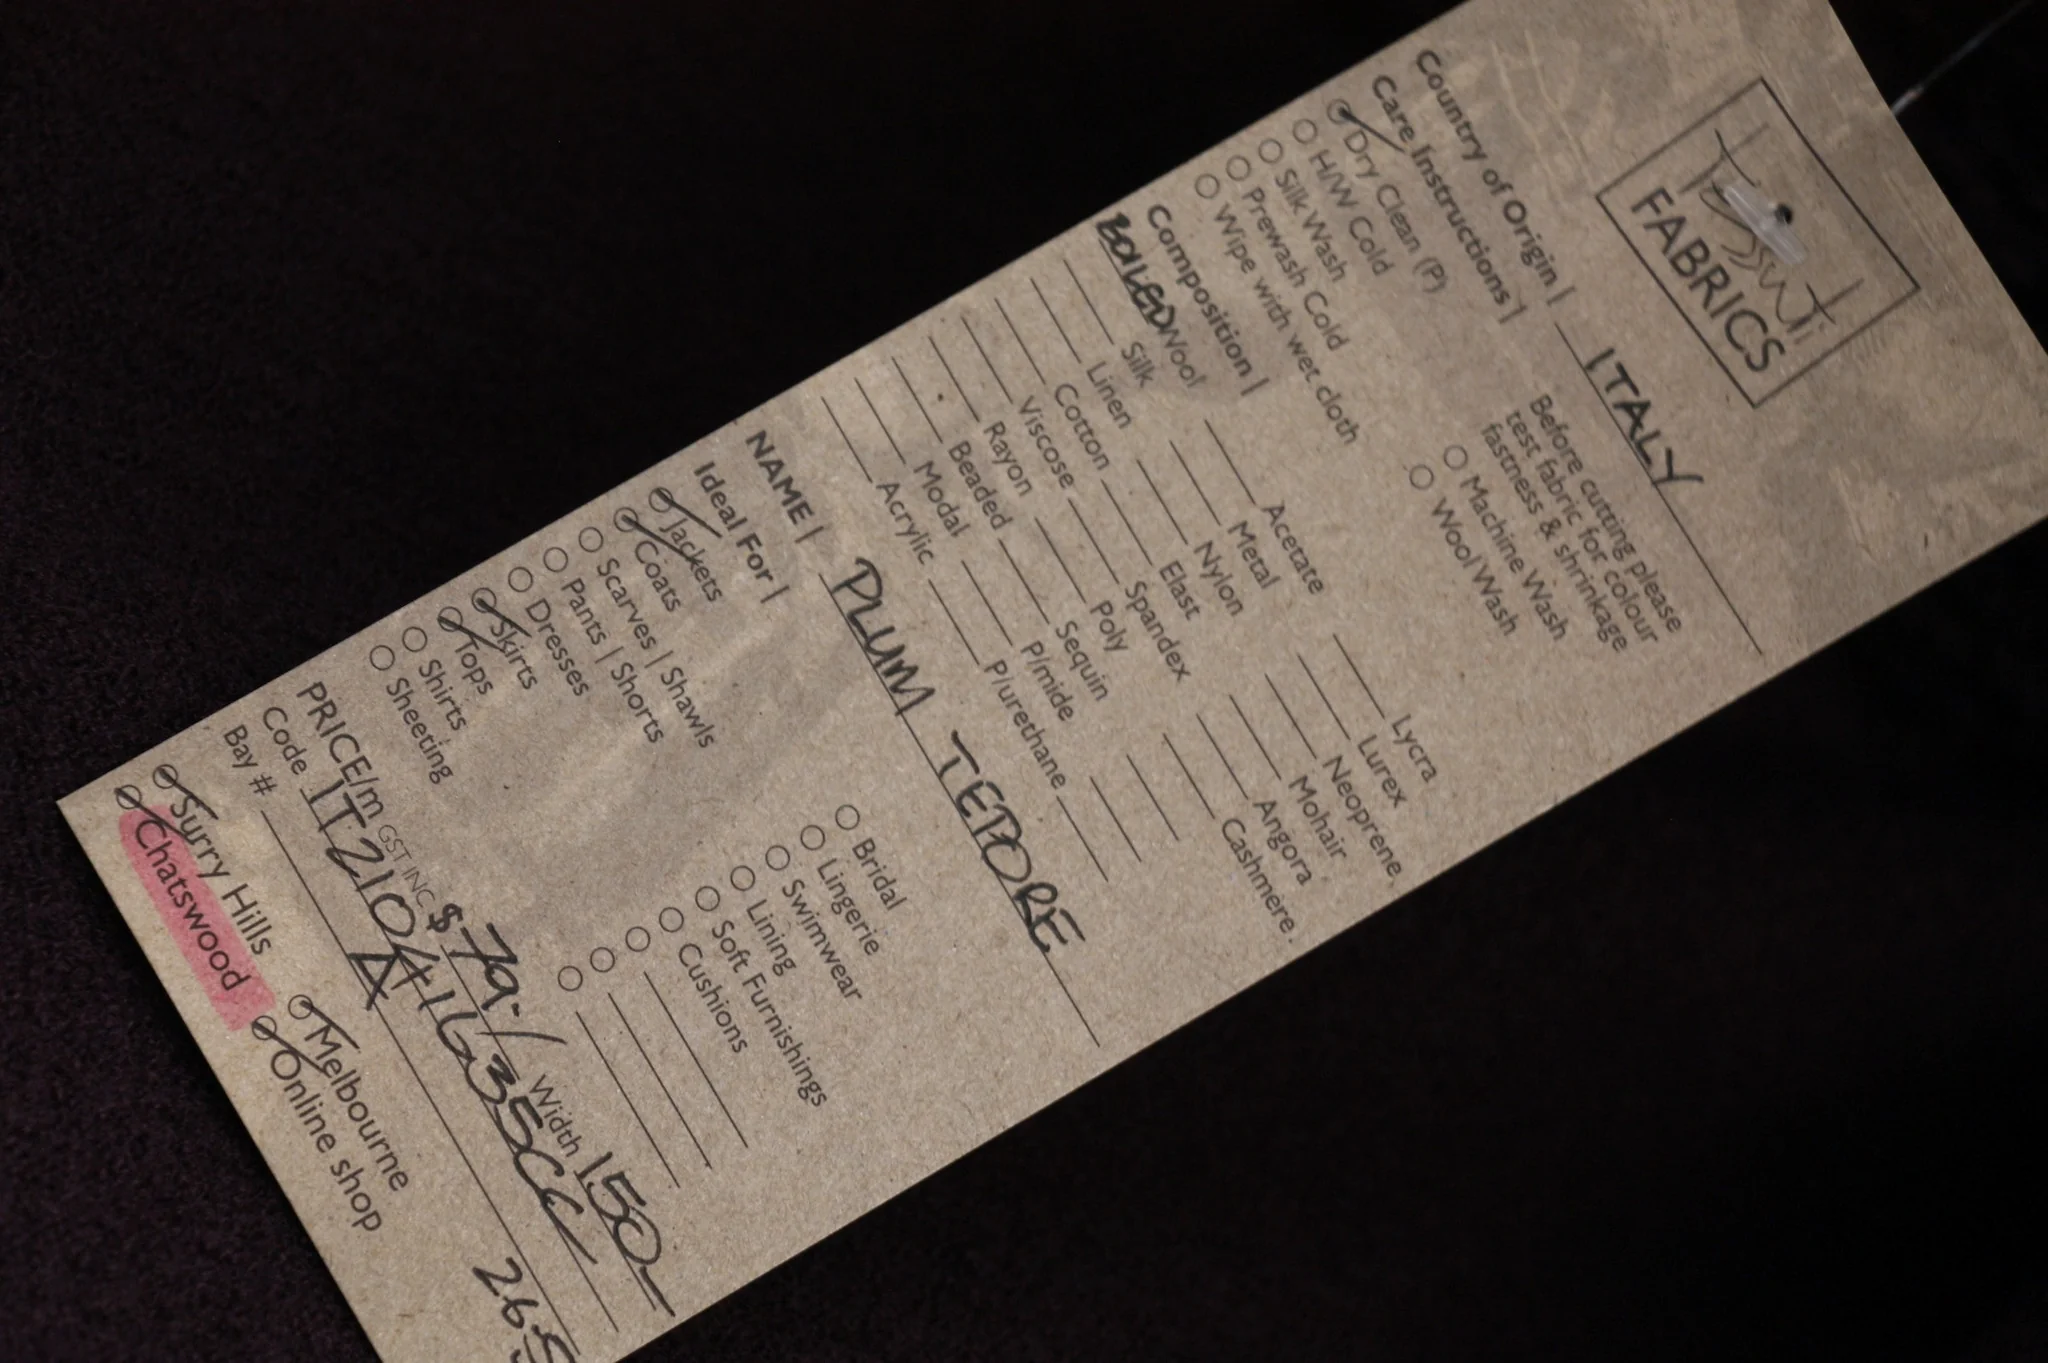 Tessuti
FABRICS
Country of Origin | ITALY
Care Instructions |
Before cutting please
test fabric for colour
fastness & shrinkage
Dry Clean (P)
H/W Cold
Silk Wash
Prewash Cold
Wipe with wet cloth
Machine Wash
Wool Wash
Composition |
BOILED Wool
Silk
Linen
Cotton
Viscose
Rayon
Beaded
Modal
Acrylic
Acetate
Metal
Nylon
Elast
Spandex
Poly
Sequin
P/mide
P/urethane
Lycra
Lurex
Neoprene
Mohair
Angora
Cashmere
NAME | PLUM TEPORE
Ideal For |
Jackets
Coats
Scarves | Shawls
Pants | Shorts
Dresses
Skirts
Tops
Shirts
Sheeting
Bridal
Lingerie
Swimwear
Lining
Soft Furnishings
Cushions
PRICE/m GST INC $79.- Width 150-
Code
Bay # A
Surry Hills
Chatswood
Melbourne
Online shop